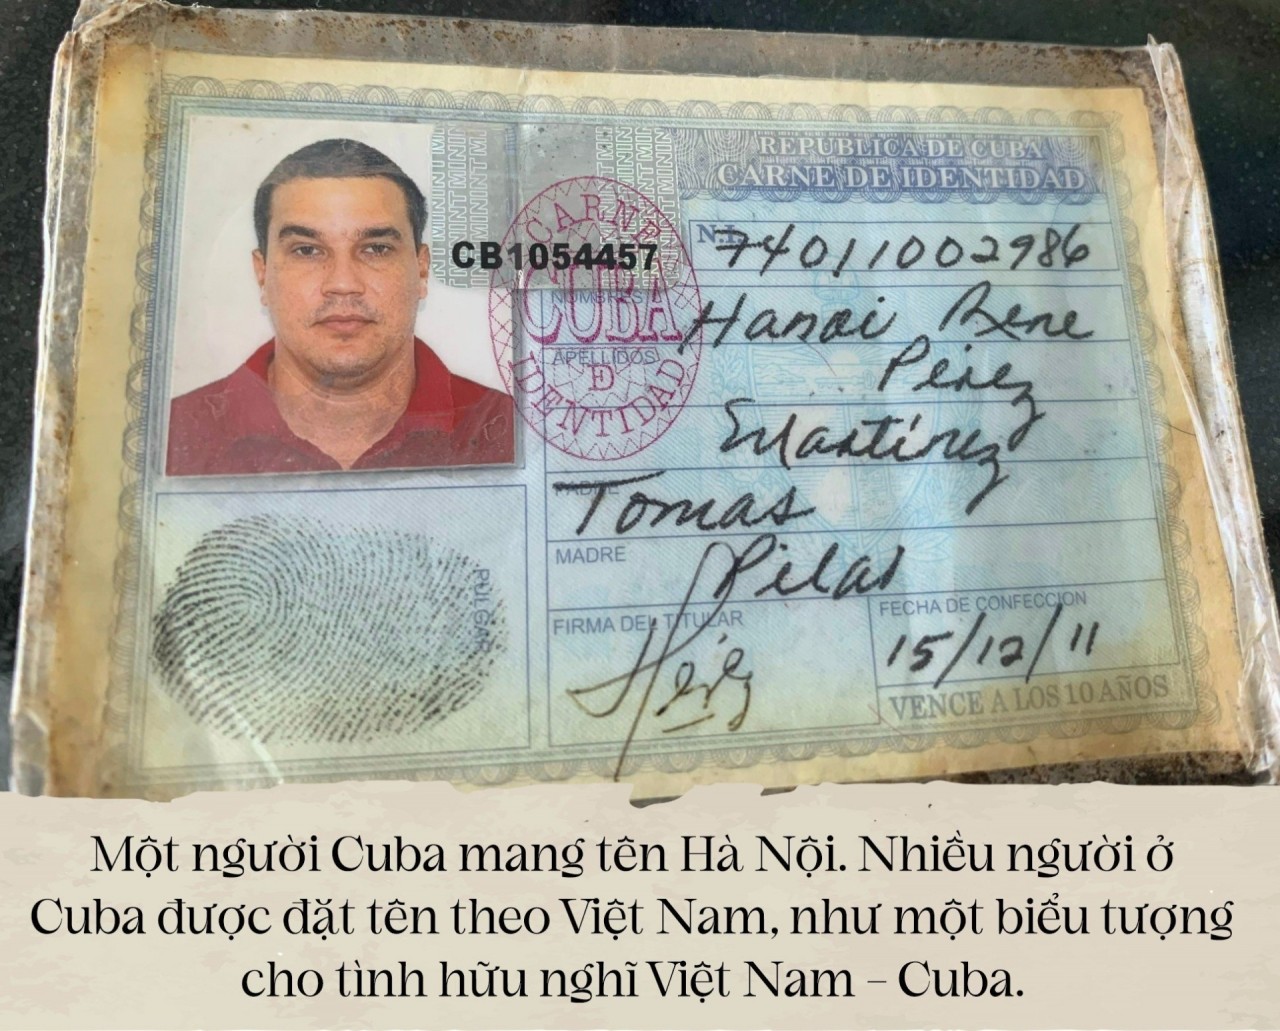 REPUBLICA DE CUBA
CARNE DE IDENTIDAD
CB1054457
N.I. 74011002986
NOMBRES Hanoi Rene
APELLIDOS Pérez
Martínez
CARNE
CUBA
D
IDENTIDAD
PADRE Tomas
MADRE Pilar
PULGAR
FIRMA DEL TITULAR
FECHA DE CONFECCION
15/12/11
VENCE A LOS 10 AÑOS
Một người Cuba mang tên Hà Nội. Nhiều người ở
Cuba được đặt tên theo Việt Nam, như một biểu tượng
cho tình hữu nghĩ Việt Nam – Cuba.